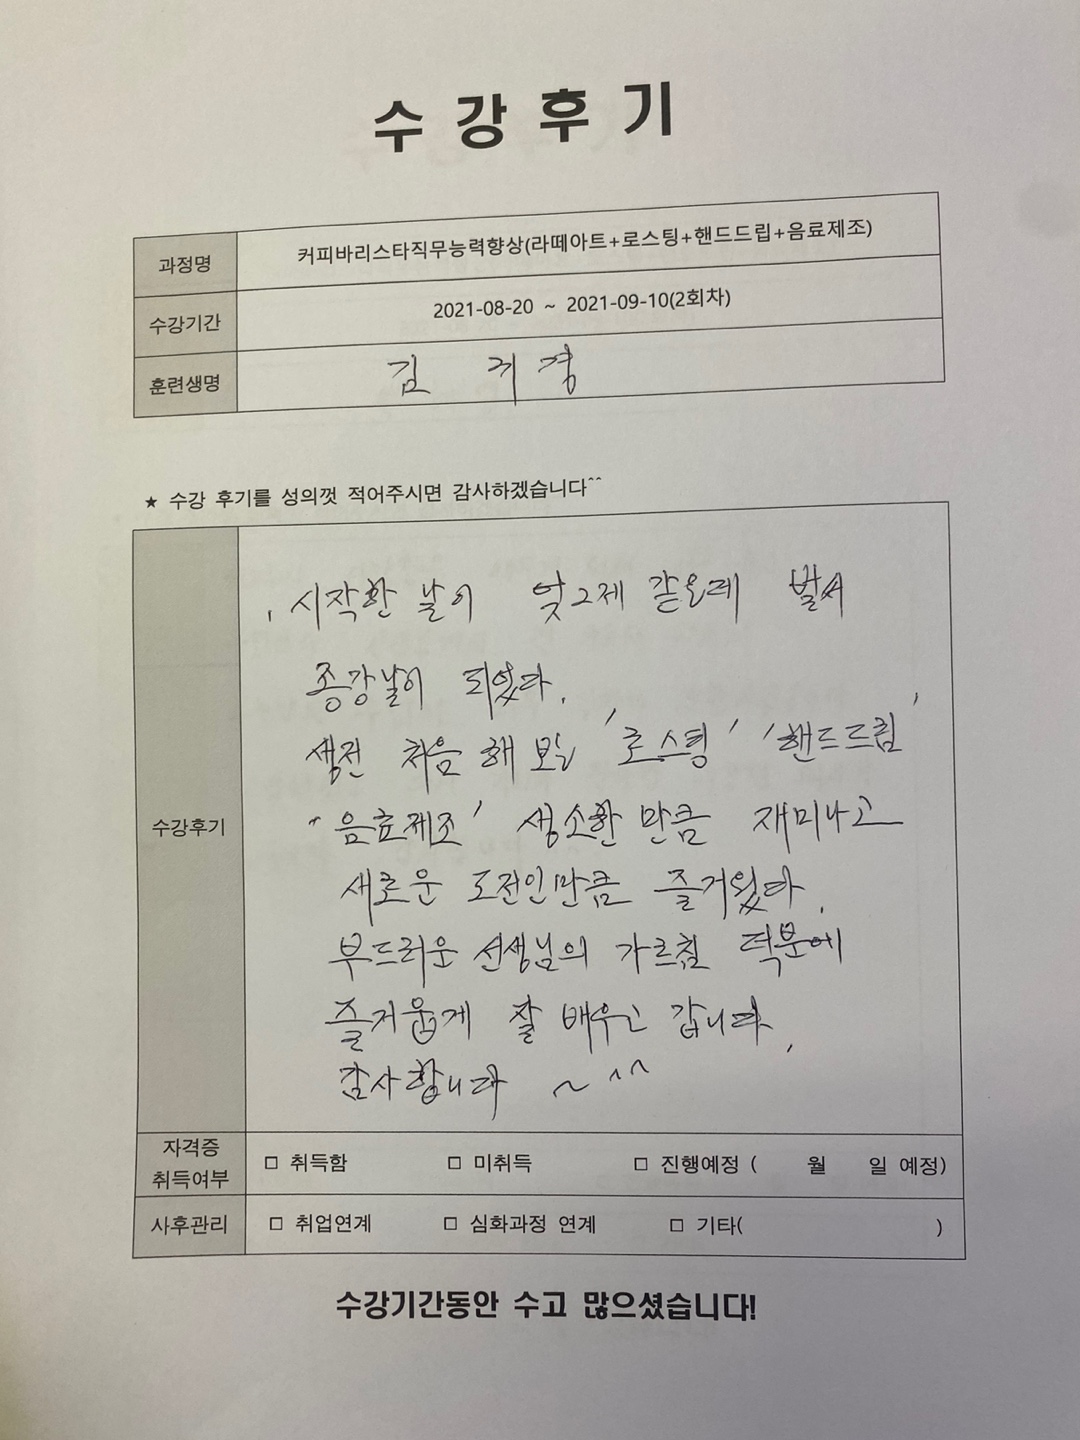 수강후기
과정명 커피바리스타직무능력향상(라떼아트+로스팅+핸드드립+음료제조)
수강기간 2021-08-20 ~ 2021-09-10(2회차)
훈련생명 김 귀경
★ 수강 후기를 성의껏 적어주시면 감사하겠습니다^^
수강후기
. 시작한 날이 엊그제 같은데 벌써
종강날이 되었다.
생전 처음 해 보는 '로스팅' '핸드드립'
"음료제조' 생소한 만큼 재미나고
새로운 도전인만큼 즐거웠다.
부드러운 선생님의 가르침 덕분에
즐거웁게 잘 배우고 갑니다.
감사합니다 ~ ^^
자격증 취득여부 □ 취득함 □ 미취득 □ 진행예정 ( 월 일 예정)
사후관리 □ 취업연계 □ 심화과정 연계 □ 기타( )
수강기간동안 수고 많으셨습니다!